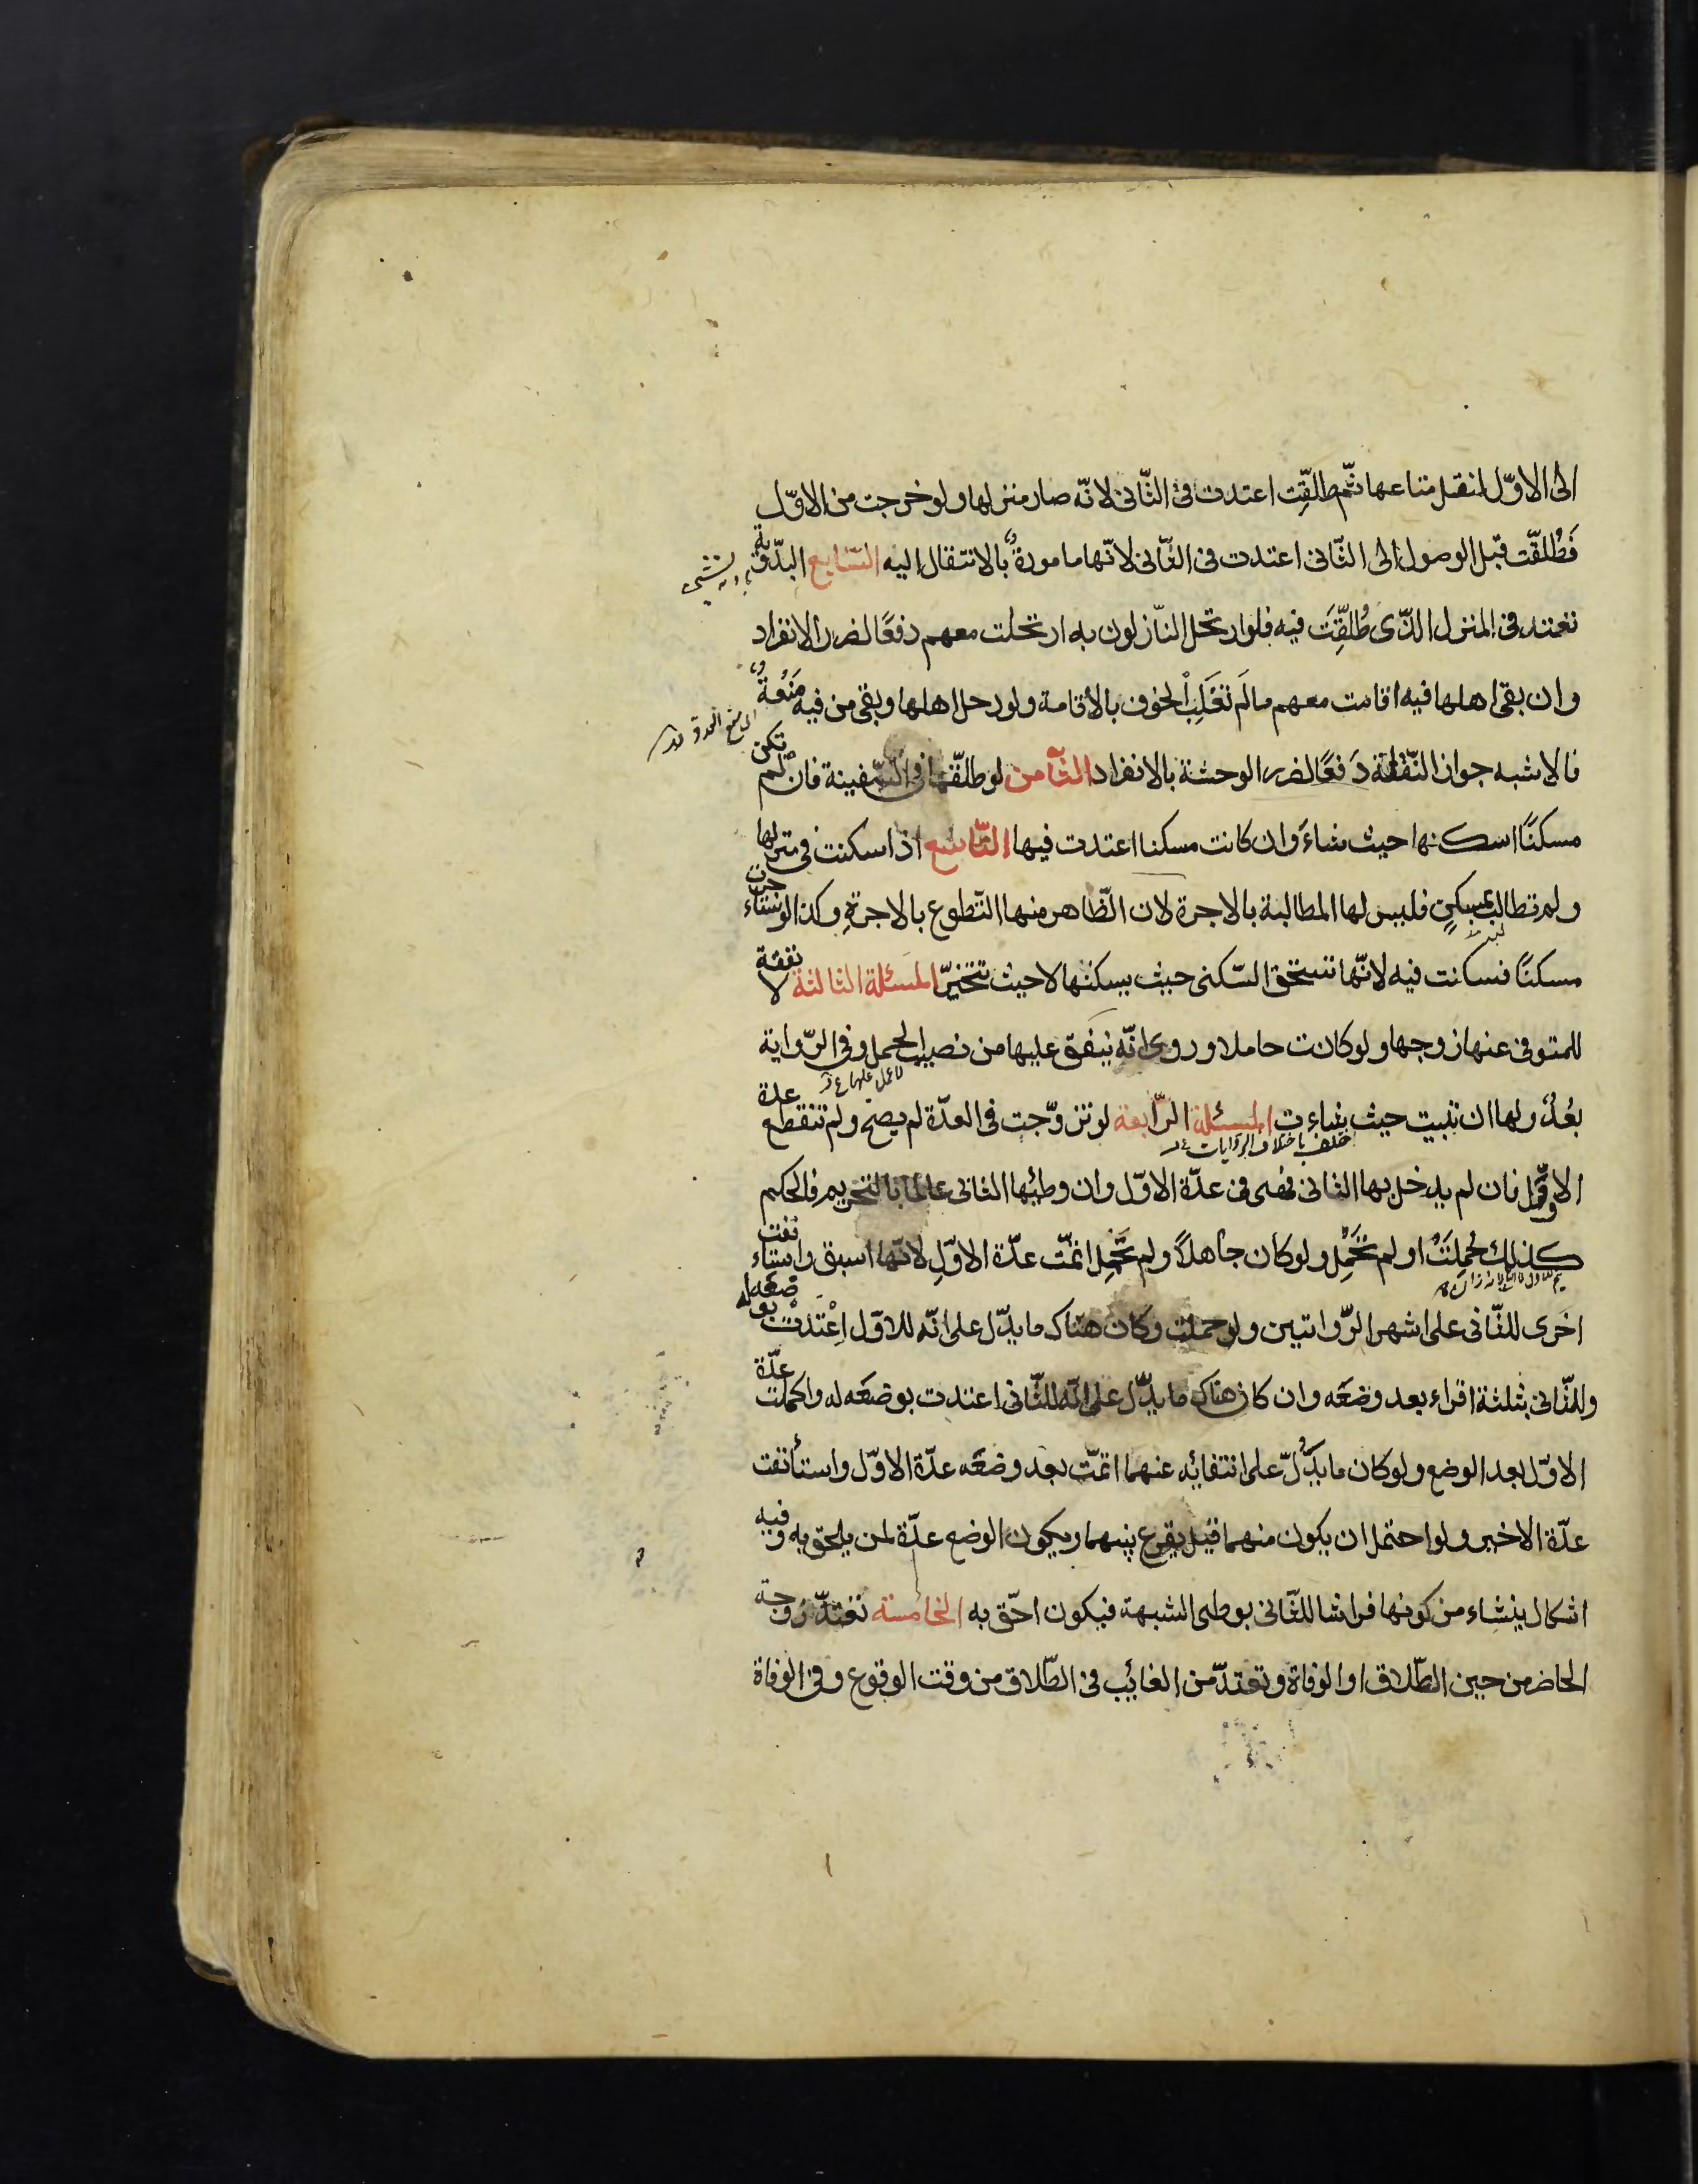 الى الاوّل لنقل متاعها ثمّ طلّقت اعتدت فى الثّانى لانّه صار منزلها ولو خرجت من الاوّل
فَطُلّقت قبل الوصول الى الثّانى اعتدت فى الثّانى لانّها مامورةٌ بالانتقال اليه السّابع البدّويّة
تعتد فى المنزل الذّى طُلّقِتَ فيه فلو ارتحل النّازلون به ارتحلت معهم دفعًا لضرر الانفراد
وان بقى اهلها فيه اقامت معهم ما لَم تغَلِبْ الخوف بالاقامة ولو رحل اهلها وبقى من فيه مَنَعةٌ
فالاشبه جواز النّقلة دَفعًا لضرر الوحشة بالانفراد الثّامن لو طلّقها فى السّفينة فان لم تكن
مسكنًا اسكنها حيث شاءَ وان كانت مسكنا اعتدت فيها التّاسع اذا سكنت فى منزلها
ولم تطالب بمسكنٍ فليس لها المطالبة بالاجرة لان الظّاهر منها التّطوع بالاجرةِ وكذا لو استاءجرت
مسكنًا فسكنت فيه لانّها تستحق السّكنى حيث يسكنها لا حيث تتخيرّ المسئلة الثالثة لا نفقة
للمتوفى عنها زوجها ولو كانت حاملا وروى انّه ينفق عليها من نصيب الحمل وفى الرّواية
بعُدٌ ولها ان تبيت حيث شاءت المسئلة الرّابعة لو تزوّجت فى العدّة لم يصح ولم تنقطع عدة
الاوّل فان لم يدخل بها الثانى فهى فى عدّة الاوّل وان وطئها الثانى عالما بالتحريم فالحكم
كذلك حُمِلَتْ او لم تحَمِل ولو كان جاهلاً ولم تحَمِل اتمّت عدّة الاوّلِ لانّها اسبق واستاءنفت
اخرى للثّانى على اشهر الرّوايتين ولو حملت وكان هنّاك ما يدّل على انّه للاوّل اعْتدت بوضعه له
وللثّانى بثلثة اقراء بعد وضعَه وان كان هناك ما يدّل على انّه للثّانى اعتدت بوضعَه له واكملت عدّة
الاوّل بعد الوضع ولو كان ما يدُّلّ على انتفائه عنهما اتمّت بعد وضعَه عدّة الاوّل واستأنفت
عدّة الاخير ولو احتمل ان يكون منهما قيل يقرع بينهما ويكون الوضع عدّة لمن يلحق به وفيه
اشكال ينشاء من كونها فراشا للثّانى بوطى الشبهة فيكون احّق به الخامسة تعتدّ زوجة
الحاضر من حين الطّلاق او الوفاة وتعتدّ من الغائب فى الطّلاق من وقت الوقوع وفى الوفاة